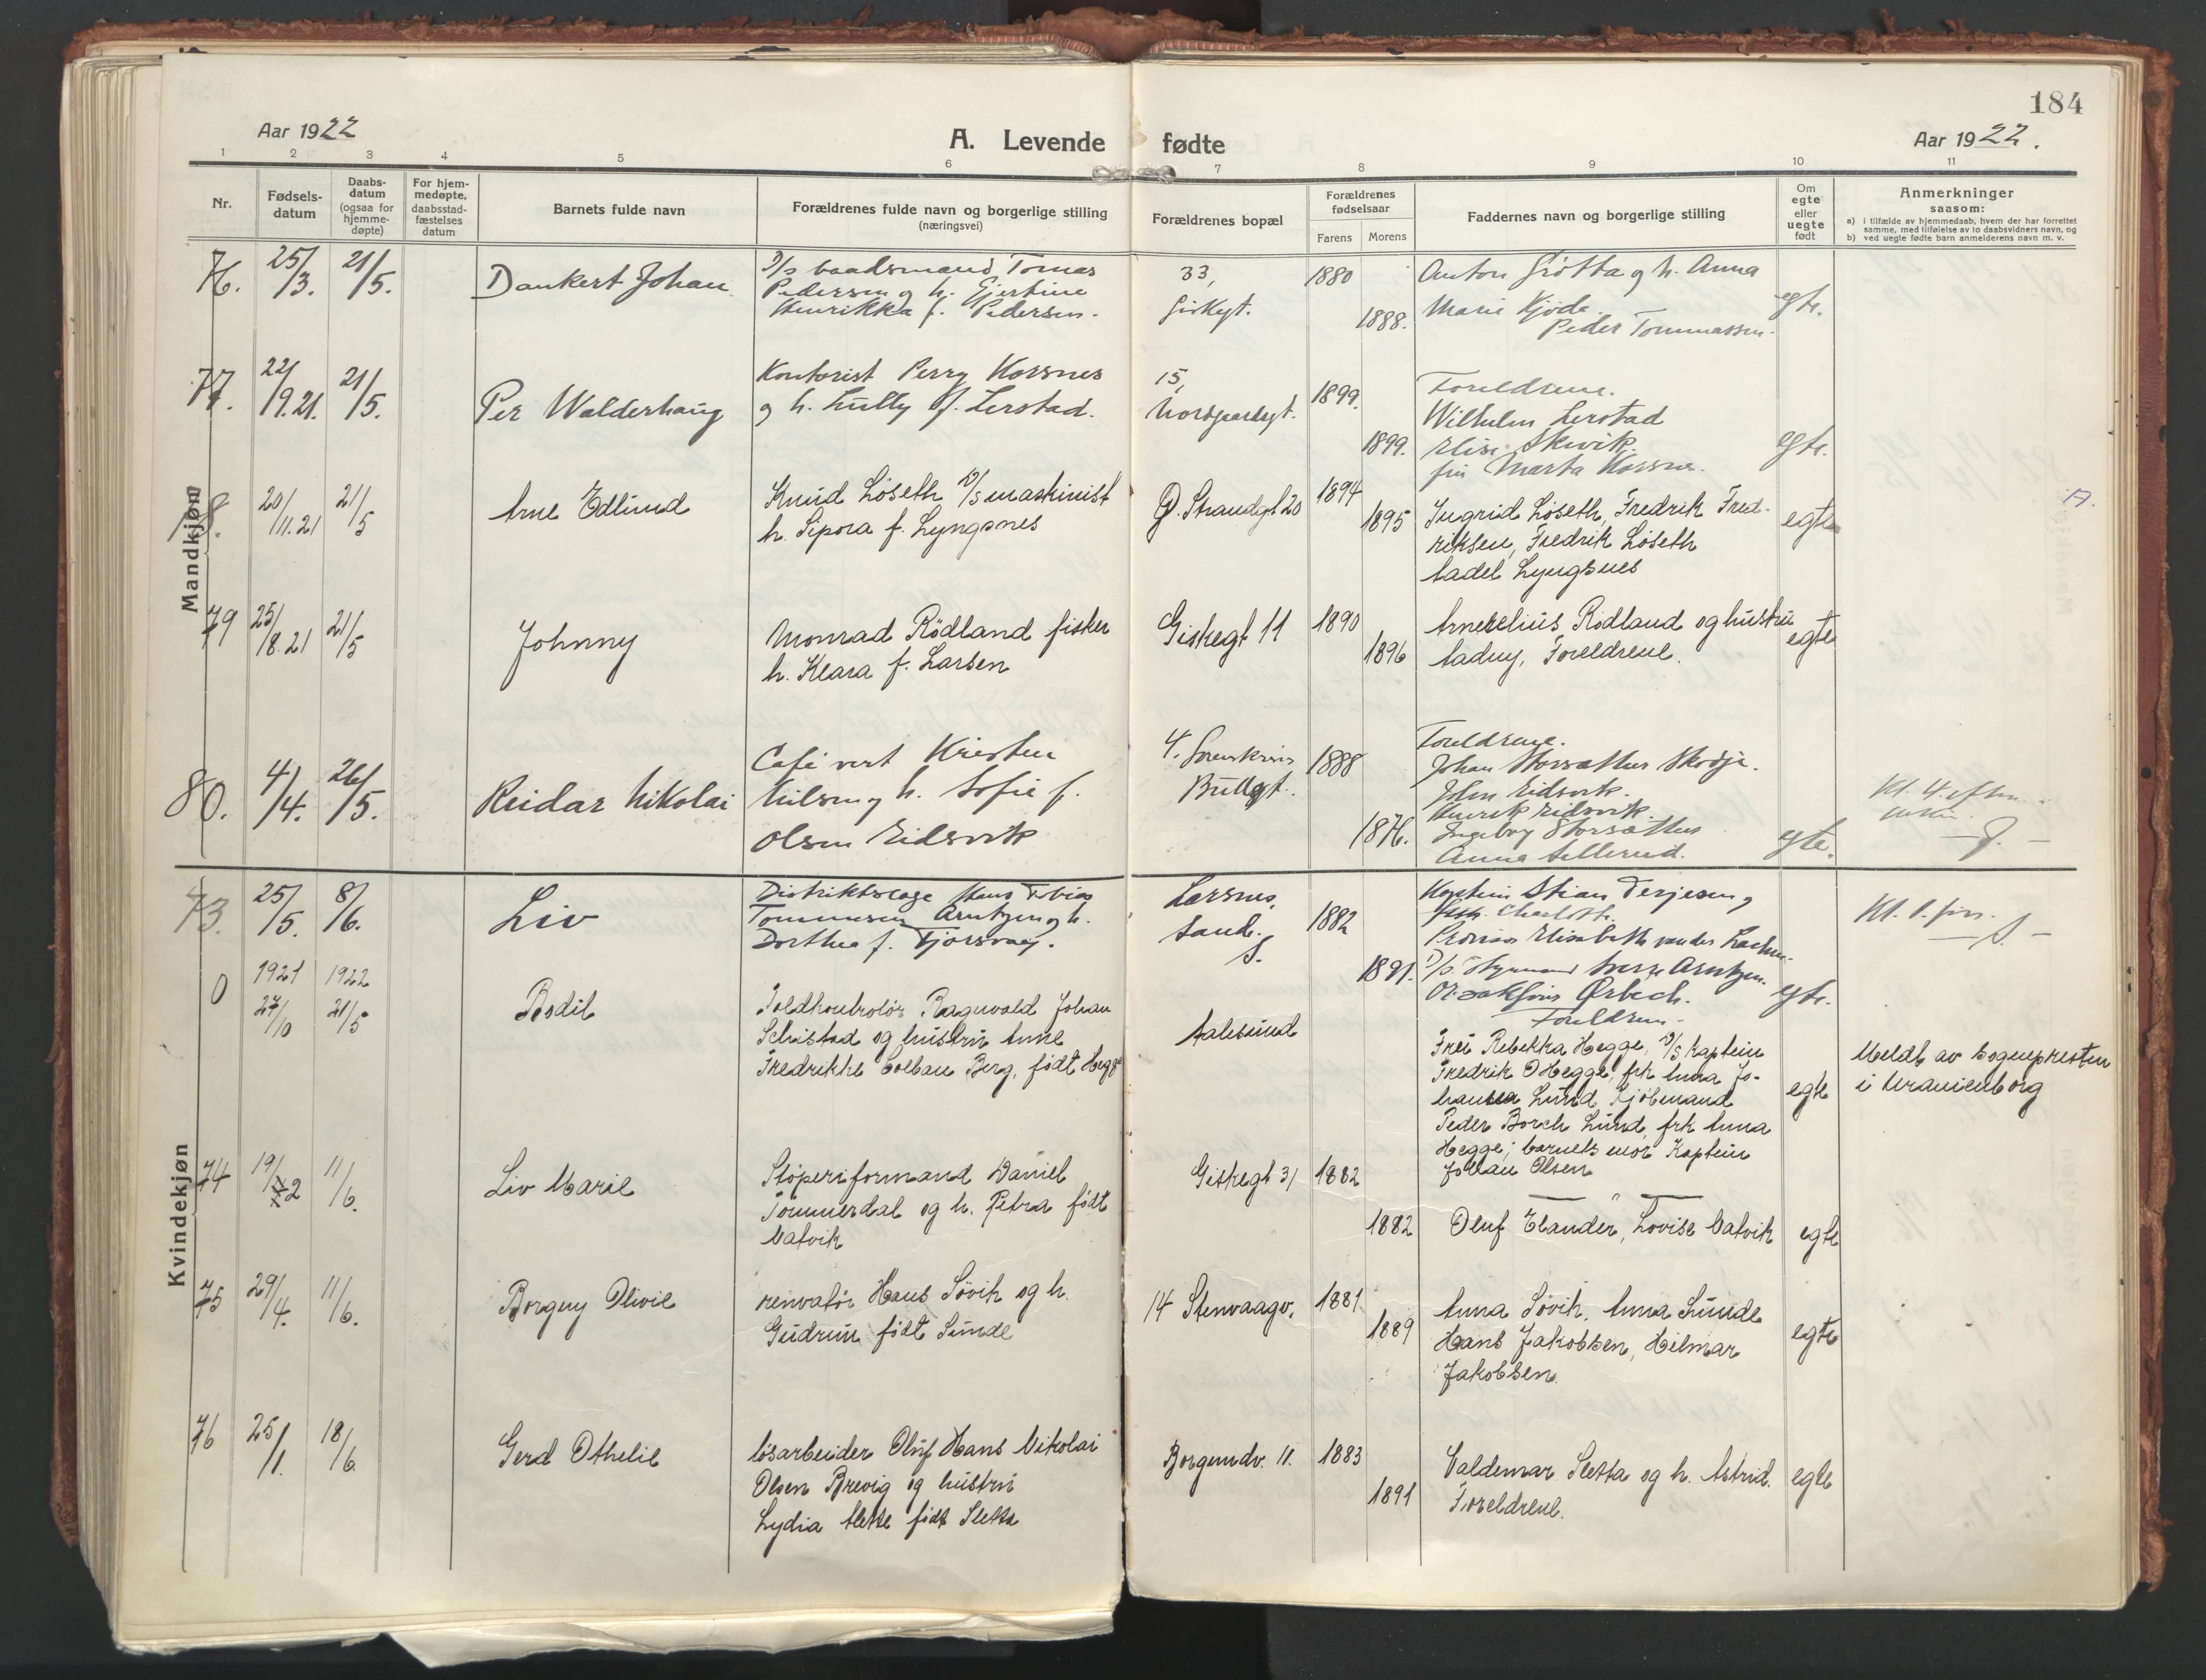 184
Aar 1922
A. Levende fødte
Aar 1922.
1 2 3 4 5 6 7 8 9 10 11
Nr.
Fødsels-
datum
Daabs-
datum
(ogsaa for
hjemme-
døpte)
For hjem-
medøpte,
daabsstad-
fæstelses
datum
Barnets fulde navn
Forældrenes fulde navn og borgerlige stilling
(næringsvei)
Forældrenes bopæl
Forældrenes
fødselsaar
Farens Morens
Faddernes navn og borgerlige stilling
Om
egte
eller
uegte
født
Anmerkninger
saasom:
a) i tilfælde av hjemmedaab, hvem der har forrettet
samme, med tilføielse av to daabsvidners navn, og
b) ved uegte fødte barn anmelderens navn m. v.
Mandkjøn
76. 25/3. 21/5.
Dankert Johan
D/s baadsmand Tomas
Pedersen og h. Gjertine
Henrikka f. Pedersen.
33,
Giskegt.
1880
1888.
Anton Giötta og h. Anna
Marie Kjöde.
Peder Tommassen.
egte.
77. 22/9.21. 21/5.
Per Walderhaug
Kontorist Perry Korsnes
og h. Lully f. Lerstad.
15,
1899.
1899.
Foreldrene.
Wilhelm Lerstad
Elise Skivik.
fru Marta Korsnes.
egte.
78. 20/11.21 21/5
Arne Edlund
Knud Löseth D/s maskinist
h. Sipora f. Lyngsnes
Ø. Strandgt 20
1894
1895
Ingrid Löseth, Fredrik Fred-
riksen, Fredrik Löseth
Aadel Lyngsnes
egte
A.
79 25/8.21 21/5
Johnny
Monrad Rödland fisker
h. Klara f. Larsen
Giskegt 11
1890
1896
Arnerelius Rödland og hustru
Aadny, Foreldrene.
egte
80. 4/4. 26/5.
Reidar Nikolai
Café vert Kristen
Nilsen og h. Sofie f.
Olsen Eidsvik
4.
Bullgt.
1888
1876.
Foreldrene.
Johan Storsæther Skodje.
John Eidsvik.
Henrik Eidsvik.
Ingeborg Storsæther
Anna Sellerud.
egte.
Kl. 4 eftm.
Kvindekjøn
73. 25/5. 8/6.
Liv
Distriktslæge Hans Tobias
Tommesen Arntzen og h.
Dorthea f. Tjorsvaag.
Larsnes,
Sande.
S.
1882
1891.
Kaptein Stian Terjesen og
Provisor Elisabeth van der
D/s. Styrmand Sverre Arntzen.
O.r.sakförer Ørbech.
Foreldrene.
egte.
0 1921 27/10 1922 21/5
Bodil
Toldkontrolör Ragnvald Johan
Schistad og hustru Anne
Fredrikke Colban Berg, född Hegge
Aalesund
Fru Rebekka Hegge, D/s kaptein
Fredrik O Hegge, frk Anna Jo-
hanna Lund Kjöbmand
Peder Borch Lund, frk Anna
Hegge; barnets mor Kaptein
Johan Olsen
egte
Meldt av sognepresten
i Uranienborg
74 19/2 11/6.
Liv Marie
Stöperiformand Daniel
Tömmerdal og h. Petra født
Vatvik
Giskegt 31
1882
1882
— " —
Oluf Elander, Lovise Vatvik
egte
75 29/4. 11/6.
Borgny Olivie
renvatör Hans Sövik og h.
Gudrun født Sunde
14 Stenvaagv.
1881
1889
Anna Sövik, Anna Sunde
Hans Jakobsen, Hilmar
Jakobsen.
egte
76 25/1. 18/6.
Gerd Othelie
lösarbeider Oluf Hans Nikolai
Olsen Brevig og hustru
Lydia Aletta født Sletta
Borgundv. 11.
1883
1891
Valdemar Sletta og h. Astrid.
Foreldrene.
egte